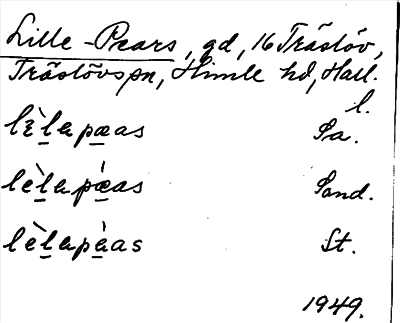 Lille-Pears, gd, 16 Träslöv,
Träslövs sn, Himle hd, Hall.
l.
lèlapæas Pa.
lèlapæ̀as Sand.
lèlapàas St.
1949.